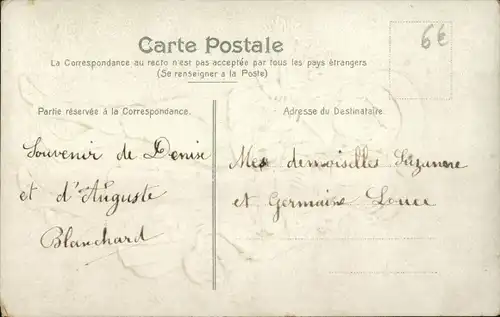 6€
Carte Postale
La Correspondance au recto n'est pas acceptée par tous les pays étrangers
(Se renseigner a la Poste)
Partie réservée à la Correspondance.
Adresse du Destinataire.
Souvenir de Denise
et d'Auguste
Blanchard
Mes demoiselles Suzanne
et Germaine